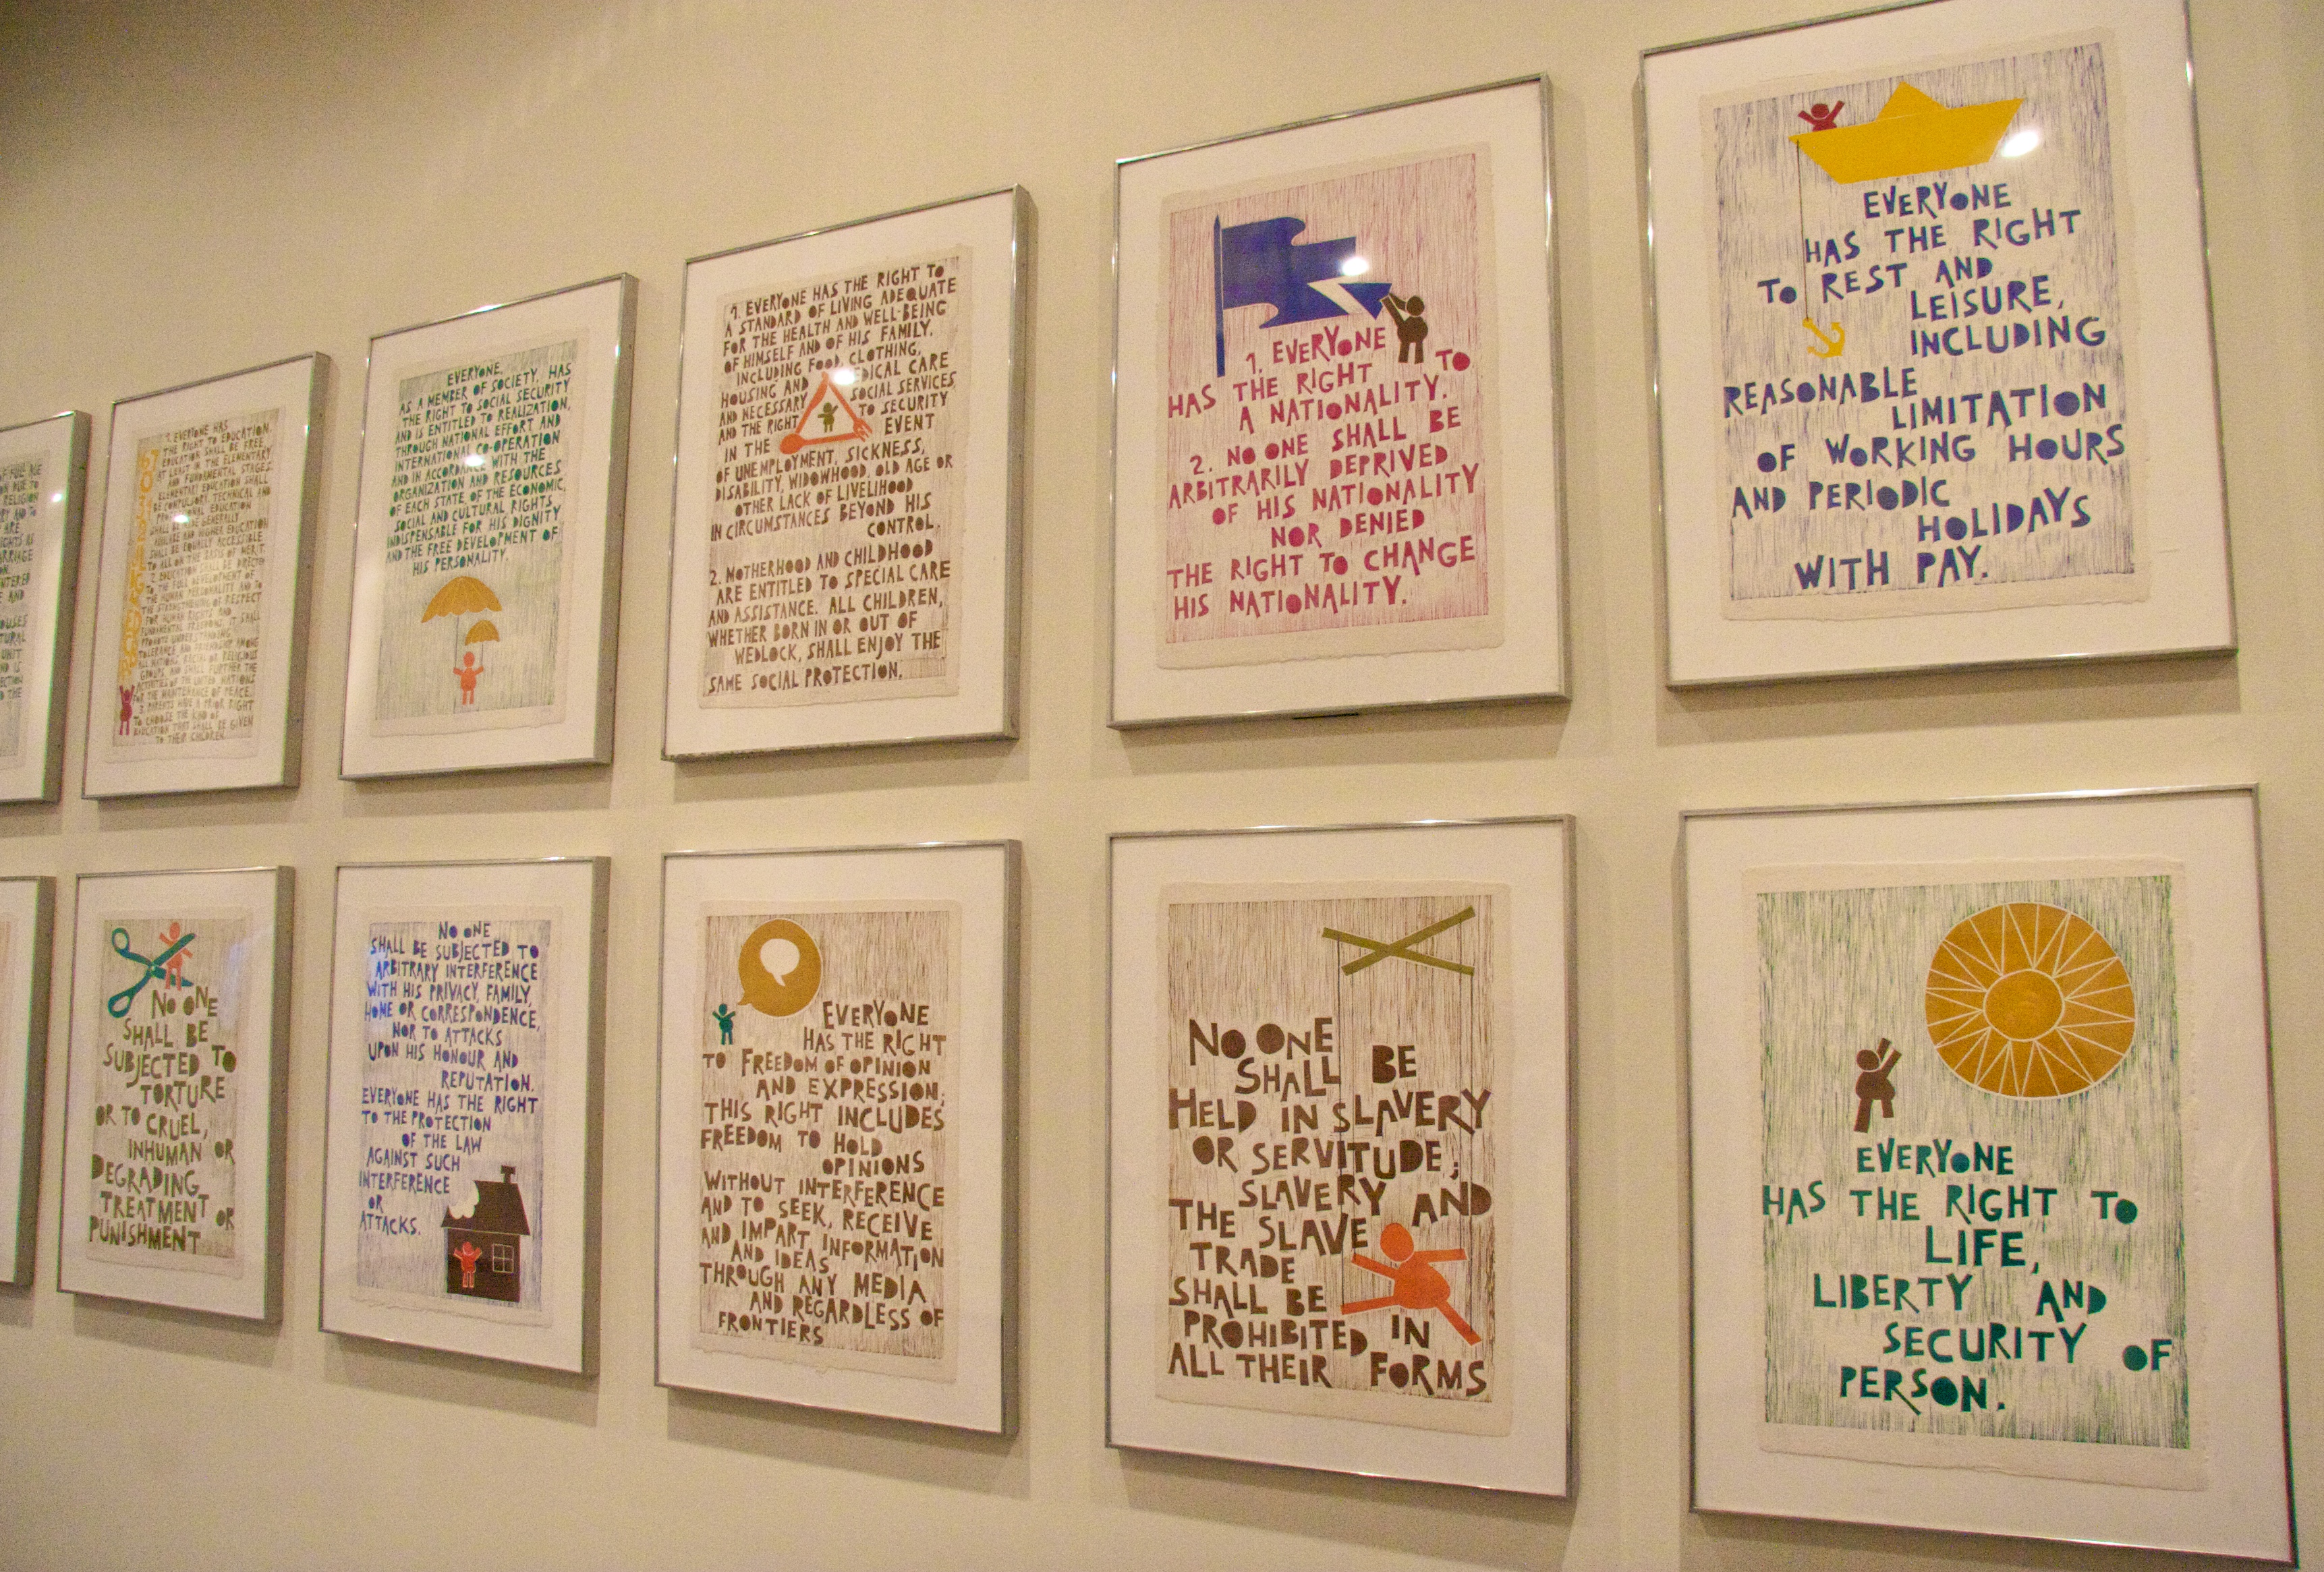 OF FULL AGE
ON DUE TO
RELIGION
RY AND TO
ARE
IGHTS AS
ARRIAGE
ON.
NTERED
E AND
OUSES
TURAL
UNIT
ND IS
ECTION
D THE
1. EVERYONE HAS
THE RIGHT TO EDUCATION.
EDUCATION SHALL BE FREE,
AT LEAST IN THE ELEMENTARY
AND FUNDAMENTAL STAGES.
ELEMENTARY EDUCATION SHALL
BE COMPULSORY. TECHNICAL AND
EDUCATION
SHALL BE GENERALLY
AND HIGHER EDUCATION
SHALL BE EQUALLY ACCESSIBLE
TO ALL ON THE BASIS OF MERIT.
2. EDUCATION SHALL BE DIRECTED
TO THE FULL DEVELOPMENT OF
THE HUMAN PERSONALITY AND TO
THE STRENGTHENING OF RESPECT
FOR HUMAN RIGHTS AND
FUNDAMENTAL FREEDOMS. IT SHALL
PROMOTE UNDERSTANDING,
TOLERANCE AND FRIENDSHIP AMONG
ALL NATIONS, RACIAL OR RELIGIOUS
GROUPS, AND SHALL FURTHER THE
ACTIVITIES OF THE UNITED NATIONS
FOR THE MAINTENANCE OF PEACE.
3. PARENTS HAVE A PRIOR RIGHT
TO CHOOSE THE KIND OF
EDUCATION THAT SHALL BE GIVEN
TO THEIR CHILDREN.
EVERYONE,
AS A MEMBER OF SOCIETY, HAS
THE RIGHT TO SOCIAL SECURITY
AND IS ENTITLED TO REALIZATION,
THROUGH NATIONAL EFFORT AND
INTERNATIONAL CO-OPERATION
AND IN ACCORDANCE WITH THE
ORGANIZATION AND RESOURCES
OF EACH STATE OF THE ECONOMIC,
SOCIAL AND CULTURAL RIGHTS
INDISPENSABLE FOR HIS DIGNITY
AND THE FREE DEVELOPMENT OF
HIS PERSONALITY.
1. EVERYONE HAS THE RIGHT TO
A STANDARD OF LIVING ADEQUATE
FOR THE HEALTH AND WELL-BEING
OF HIMSELF AND OF HIS FAMILY,
INCLUDING FOOD, CLOTHING,
HOUSING AND MEDICAL CARE
AND NECESSARY SOCIAL SERVICES,
AND THE RIGHT TO SECURITY
IN THE EVENT
OF UNEMPLOYMENT, SICKNESS,
DISABILITY, WIDOWHOOD, OLD AGE OR
OTHER LACK OF LIVELIHOOD
IN CIRCUMSTANCES BEYOND HIS
CONTROL.
2. MOTHERHOOD AND CHILDHOOD
ARE ENTITLED TO SPECIAL CARE
AND ASSISTANCE. ALL CHILDREN,
WHETHER BORN IN OR OUT OF
WEDLOCK, SHALL ENJOY THE
SAME SOCIAL PROTECTION.
1. EVERYONE
HAS THE RIGHT TO
A NATIONALITY.
2. NO ONE SHALL BE
ARBITRARILY DEPRIVED
OF HIS NATIONALITY
NOR DENIED
THE RIGHT TO CHANGE
HIS NATIONALITY.
EVERYONE
HAS THE RIGHT
TO REST AND
LEISURE,
INCLUDING
REASONABLE
LIMITATION
OF WORKING HOURS
AND PERIODIC
HOLIDAYS
WITH PAY.
NO ONE
SHALL BE
SUBJECTED TO
TORTURE
OR TO CRUEL,
INHUMAN OR
DEGRADING
TREATMENT OR
PUNISHMENT
NO ONE
SHALL BE SUBJECTED TO
ARBITRARY INTERFERENCE
WITH HIS PRIVACY, FAMILY,
HOME OR CORRESPONDENCE,
NOR TO ATTACKS
UPON HIS HONOUR AND
REPUTATION.
EVERYONE HAS THE RIGHT
TO THE PROTECTION
OF THE LAW
AGAINST SUCH
INTERFERENCE
OR
ATTACKS.
EVERYONE
HAS THE RIGHT
TO FREEDOM OF OPINION
AND EXPRESSION;
THIS RIGHT INCLUDES
FREEDOM TO HOLD
OPINIONS
WITHOUT INTERFERENCE
AND TO SEEK, RECEIVE
AND IMPART INFORMATION
AND IDEAS
THROUGH ANY MEDIA
AND REGARDLESS OF
FRONTIERS
NO ONE
SHALL BE
HELD IN SLAVERY
OR SERVITUDE;
SLAVERY AND
THE SLAVE
TRADE
SHALL BE
PROHIBITED IN
ALL THEIR FORMS
EVERYONE
HAS THE RIGHT TO
LIFE,
LIBERTY AND
SECURITY OF
PERSON.